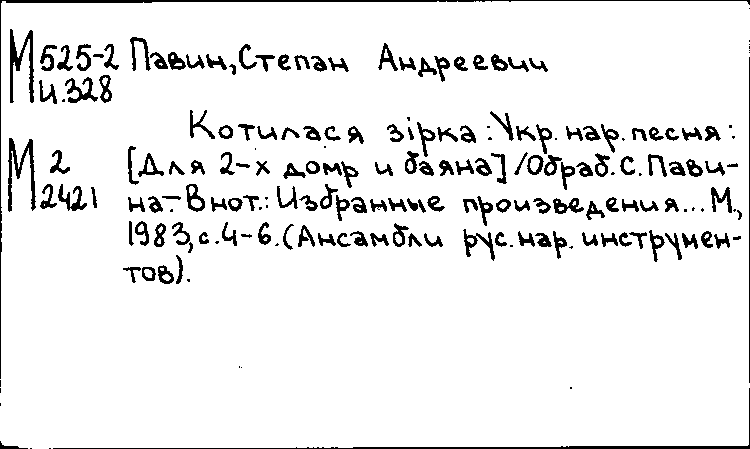 М 525-2 Павин, Степан Андреевич
И.328
Котилася зірка: Укр. нар. песня:
М 2 [Для 2-х домр и баяна] / Обраб. С. Пави-
2421 на.- В нот.: Избранные произведения... М.,
1983, с. 4-6. (Ансамбли рус. нар. инструмен-
тов).